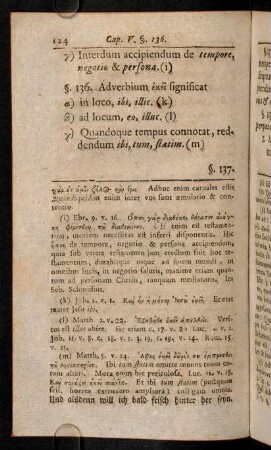 124 Cap. V. §. 136.
γ) Interdum accipiendum de tempore,
negotio & persona. (i)
§. 136. Adverbium ἐκεῖ significat
α) in loco, ibi, illic. (k)
β) ad locum, eo, illuc. (l)
γ) Quandoque tempus connotat, red-
dendum ibi, tum, statim. (m)
§. 137.
Adhuc enim carnales estis
enim inter vos sunt æmulatio &
(i) Ebr. 9. v. 16. Ὅπου γὰρ διαθήκη θάνατον ἀνάγ-
κη φέρεσθαι τοῦ διαθεμένου. Ubi enim est testamen-
tum, mortem necesse est inferri disponentis. Hic
ὅπου de tempore, negotio & persona accipiendum,
quia sub vetere testamentum jam erectum fuit hoc te-
stamentum, durabitque usque ad finem mundi, in
omnibus locis, in negotio salutis, maxime etiam quan-
tum ad personam Christi, maxime testatoris. Ita
Seb. Schmidius.
(k) Joh. 2. v. 1. Καὶ ἦν ἡ μήτηρ Ἰησοῦ ἐκεῖ. Et erat
mater Jesu ibi.
(l) Matth. 2. v. 22. Ἐφοβήθη ἐκεῖ ἀπελθεῖν. Veri-
tus est illuc abire. Sic etiam c. 17. v. 20. Luc.
Joh. 11. v. 8. Rom. 15.
v. 24.
(m) Matth. 5. v. 24. Ἄφες ἐκεῖ δῶρόν σου ἔμπροσθεν
τοῦ θυσιαστηρίου. Ibi tum statim omitte munus tuum coram
altari. Mora enim hic periculosa. Luc. 12. v. 18.
Καὶ συνάξω ἐκεῖ πάντα. Et ibi tum statim (postquam
scil. horrea extruero ampliora) colligam omnia
Und alsdenn will ich bald frisch hinter her seyn.